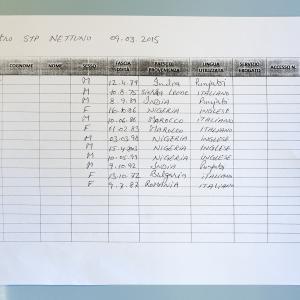 STP NETTUNO 09.03.2015
COGNOME NOME SESSO FASCIA D'ETÀ PAESE DI PROVENIENZA LINGUA UTILIZZATA SERVIZIO EROGATO ACCESSO N.
M 12.4.79 India Punjabi
M 10.8.75 SIERRA LEONE ITALIANO
M 8.9.81 INDIA Punjabi
F 16.10.86 NIGERIA INGLESE
M 10.06.86 MAROCCO ITALIANO
F 11.02.83 MAROCCO ITALIANO
M 03.03.98 NIGERIA INGLESE
M NIGERIA INGLESE
M 10.05.94 NIGERIA INGLESE
M 9.10.92 INDIA Punjabi
F 13.10.72 Bulgaria ITALIANO
F 9.7.82 ROMANIA ITALIANO